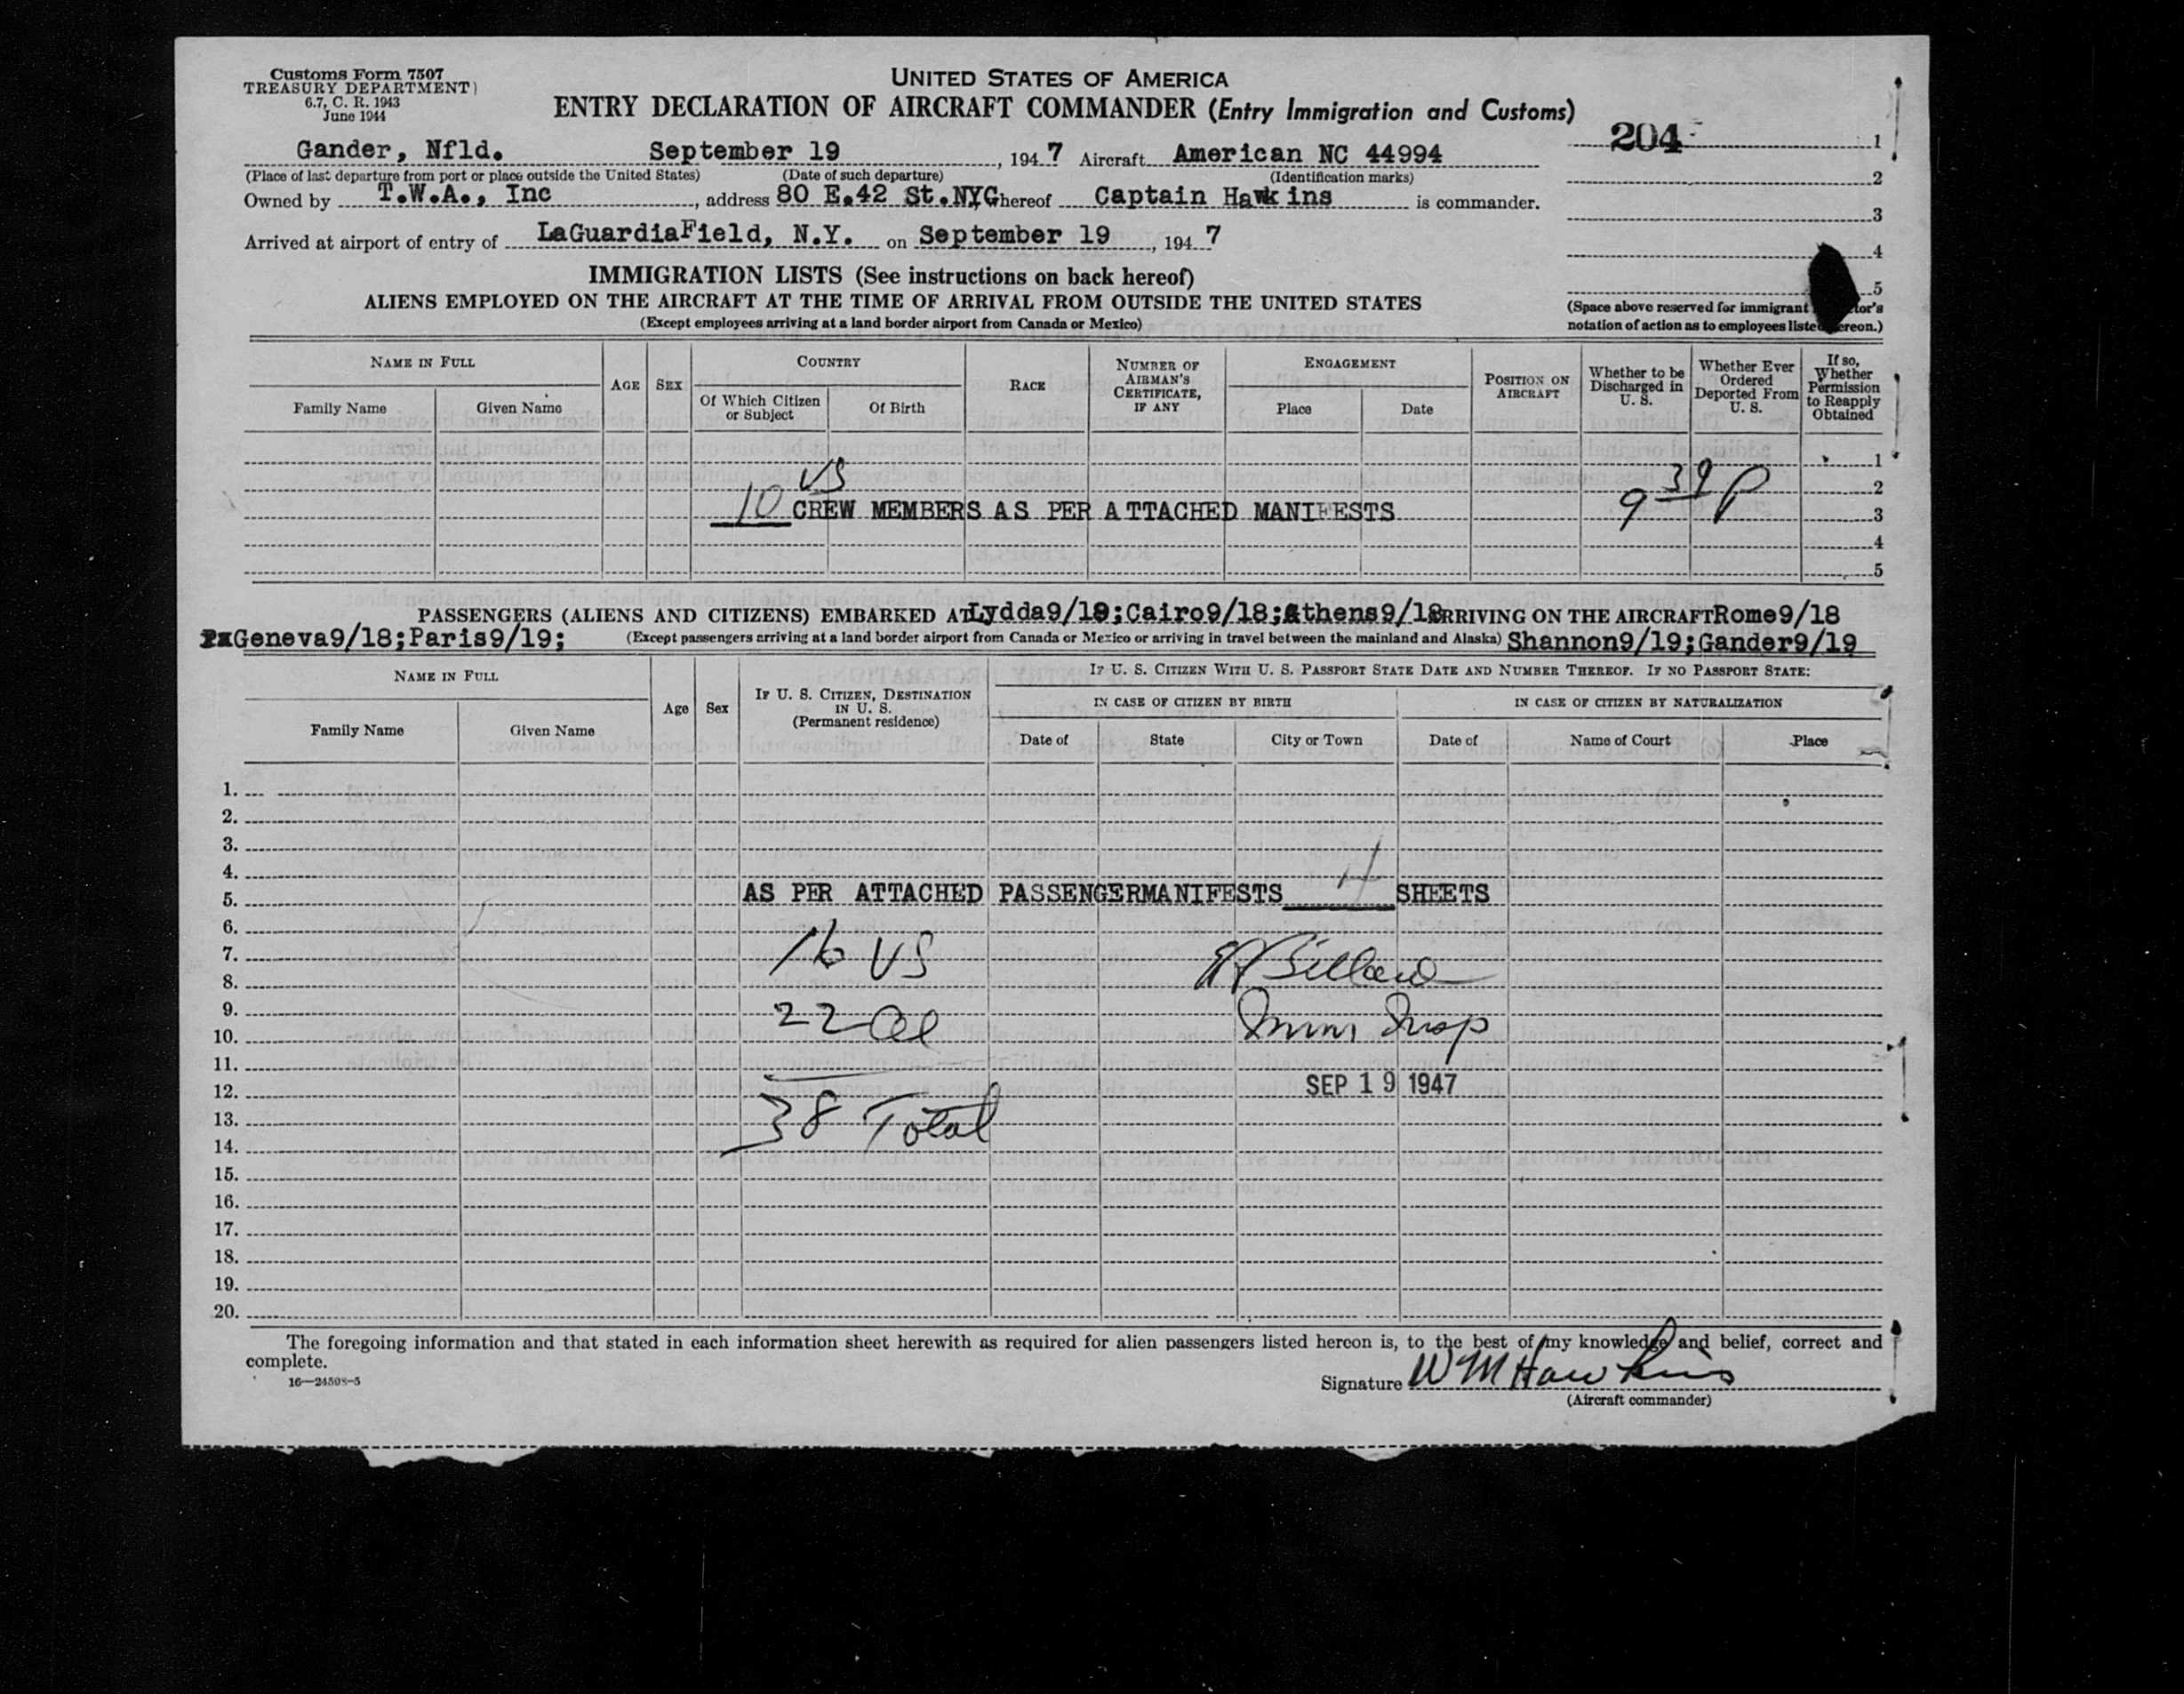 Customs Form 7507
TREASURY DEPARTMENT)
6.7, C. R. 1943
June 1944
UNITED STATES OF AMERICA
ENTRY DECLARATION OF AIRCRAFT COMMANDER (Entry Immigration and Customs)
204 1
Gander, Nfld. September 19, 1947 Aircraft American NC 44994
(Place of last departure from port or place outside the United States) (Date of such departure) (Identification marks)
2
Owned by T.W.A., Inc, address 80 E.42 St.NYC hereof Captain Hawkins is commander.
3
Arrived at airport of entry of LaGuardiaField, N.Y. on September 19, 1947
4
5
IMMIGRATION LISTS (See instructions on back hereof)
ALIENS EMPLOYED ON THE AIRCRAFT AT THE TIME OF ARRIVAL FROM OUTSIDE THE UNITED STATES
(Except employees arriving at a land border airport from Canada or Mexico)
(Space above reserved for immigrant tor's
notation of action as to employees listed hereon.)
NAME IN FULL
Family Name Given Name
AGE SEX
COUNTRY
Of Which Citizen or Subject Of Birth
RACE
NUMBER OF AIRMAN'S CERTIFICATE, IF ANY
ENGAGEMENT
Place Date
POSITION ON AIRCRAFT
Whether to be Discharged in U. S.
Whether Ever Ordered Deported From U. S.
If so, Whether Permission to Reapply Obtained
1
US 2
10 CREW MEMBERS AS PER ATTACHED MANIFESTS 9 39 P 3
4
5
PASSENGERS (ALIENS AND CITIZENS) EMBARKED AT Lydda9/18;Cairo9/18;Athens9/18 ARRIVING ON THE AIRCRAFT Rome9/18
Geneva9/18;Paris9/19; (Except passengers arriving at a land border airport from Canada or Mexico or arriving in travel between the mainland and Alaska) Shannon9/19;Gander9/19
NAME IN FULL
Family Name Given Name
Age Sex
IF U. S. CITIZEN, DESTINATION IN U. S.
(Permanent residence)
IF U. S. CITIZEN WITH U. S. PASSPORT STATE DATE AND NUMBER THEREOF. IF NO PASSPORT STATE:
IN CASE OF CITIZEN BY BIRTH IN CASE OF CITIZEN BY NATURALIZATION
Date of State City or Town Date of Name of Court Place
1.
2.
3.
4.
5. AS PER ATTACHED PASSENGERMANIFESTS 4 SHEETS
6.
7. 16 US
8.
9. 22 al Imm Insp
10.
11.
12. SEP 19 1947
13. 38 Total
14.
15.
16.
17.
18.
19.
20.
The foregoing information and that stated in each information sheet herewith as required for alien passengers listed hereon is, to the best of my knowledge and belief, correct and
complete.
16—24508-5
Signature W M Hawkins
(Aircraft commander)